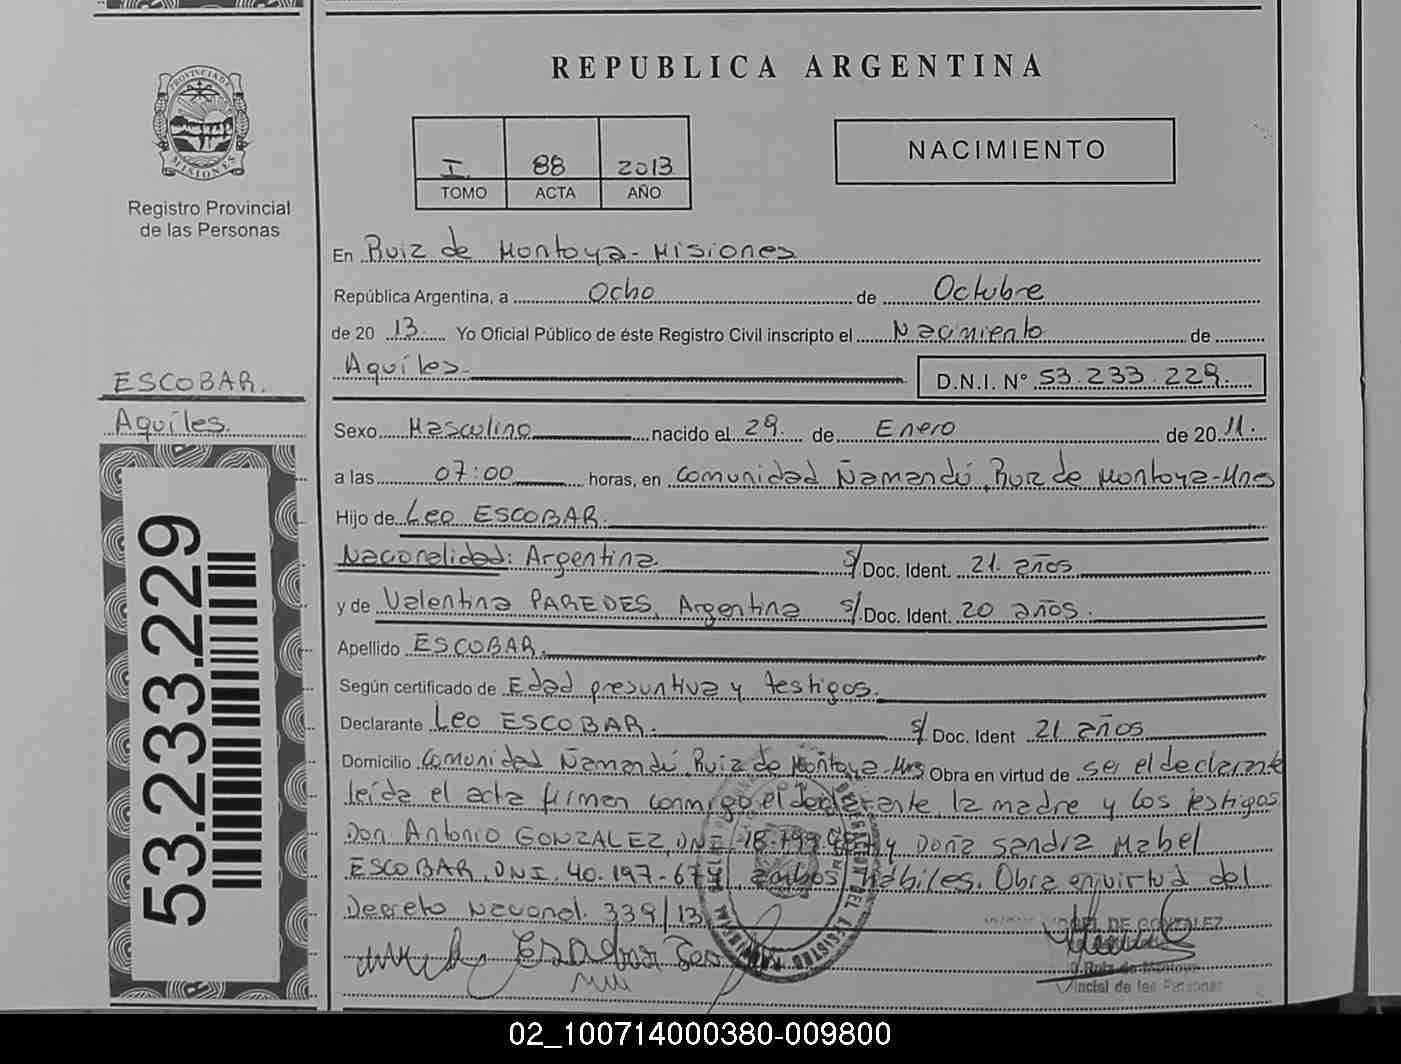 REPUBLICA ARGENTINA
PROVINCIA DE
MISIONES
Registro Provincial
de las Personas
I. 88 2013
TOMO ACTA AÑO
NACIMIENTO
En Ruiz de Montoya - Misiones
República Argentina, a Ocho de Octubre
de 20 13. Yo Oficial Público de éste Registro Civil inscripto el Nacimiento de
Aquíles. D.N.I. N° 53.233.229.
ESCOBAR.
Aquíles.
53.233.229
Sexo Masculino nacido el 29. de Enero de 20 11.
a las 07:00 horas, en Comunidad Ñamandú, Ruiz de Montoya-Mnes
Hijo de Leo ESCOBAR.
Nacionalidad: Argentina. s/ Doc. Ident. 21. años
y de Valentina PAREDES, Argentina s/ Doc. Ident. 20 años.
Apellido ESCOBAR.
Según certificado de Edad presuntiva y testigos.
Declarante Leo ESCOBAR. s/ Doc. Ident 21 años
Domicilio Comunidad Ñamandú, Ruiz de Montoya-Mns Obra en virtud de ser el declarante
leída el acta firman conmigo el declarante, la madre y los testigos
Don. Antonio GONZALEZ, DNI y Doña Sandra Mabel
ESCOBAR, DNI. 40.197-674, ambos hábiles. Obra en virtud del
Decreto Nacional. 339/13
Escobar Leo
DE GONZALEZ
Ruiz de Montoya
Provincial de las Personas
02_100714000380-009800